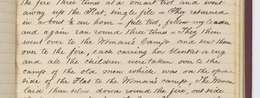 the fire three times at a smart trot and went
away up the Flat, single file — They returned
in about ½ an hour — full trot, follow my leader
and again ran round three times — They then
went over to the Woman's Camp and sat then
over to the fire, each having a blanket or rug
and all the children were taken over to the
camps of the old men which was on the oppo-
site of the Flat to the Woman's camps. The Boom
then slow down round the fire, outside